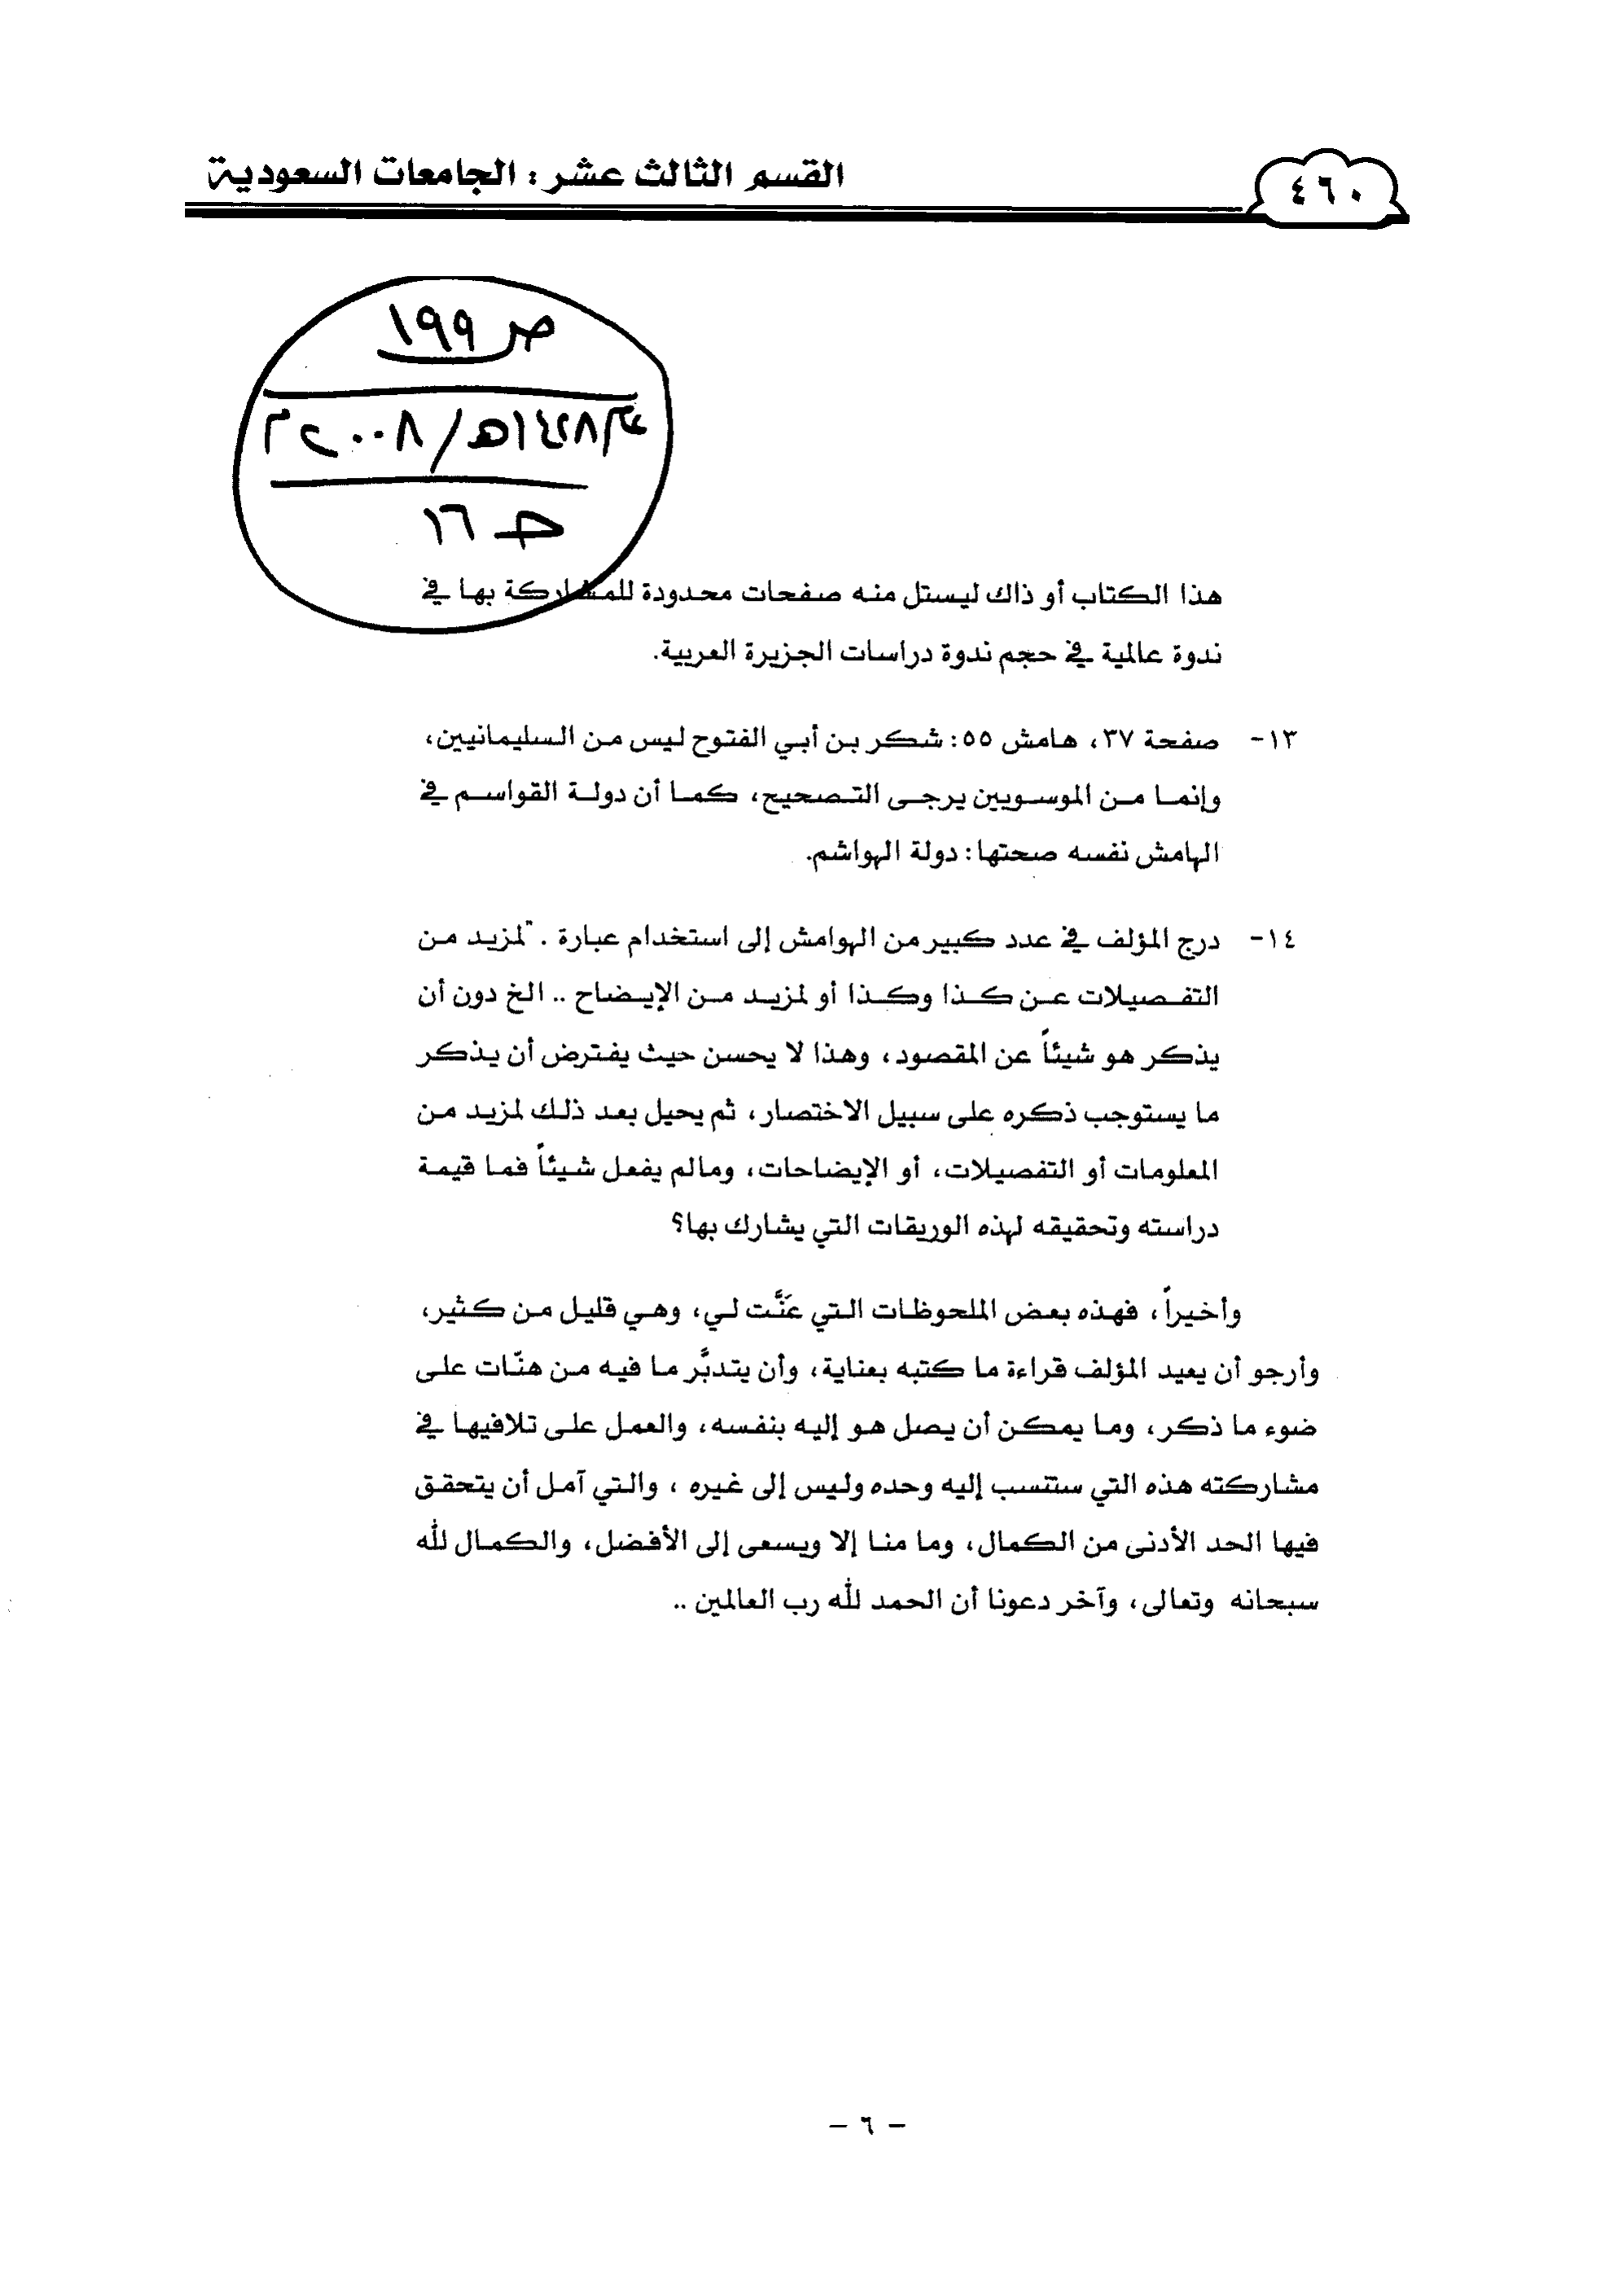 ٤٦٠
القسم الثالث عشر : الجامعات السعودية
ص ١٩٩
١٤٢٨هـ/٢٠٠٨م
جـ ١٦
هذا الكتاب أو ذاك ليستل منه صفحات محدودة للمشاركة بها في
ندوة عالمية في حجم ندوة دراسات الجزيرة العربية.
١٣- صفحة ٣٧، هامش ٥٥: شكر بن أبي الفتوح ليس من السليمانيين،
وإنما من الموسويين يرجى التصحيح، كما أن دولة القواسم في
الهامش نفسه صحتها: دولة الهواشم.
١٤- درج المؤلف في عدد كبير من الهوامش إلى استخدام عبارة . "لمزيد من
التفصيلات عن كذا وكذا أو لمزيد من الإيضاح .. الخ دون أن
يذكر هو شيئاً عن المقصود، وهذا لا يحسن حيث يفترض أن يذكر
ما يستوجب ذكره على سبيل الاختصار، ثم يحيل بعد ذلك لمزيد من
المعلومات أو التفصيلات، أو الإيضاحات، ومالم يفعل شيئاً فما قيمة
دراسته وتحقيقه لهذه الوريقات التي يشارك بها؟
وأخيراً، فهذه بعض الملحوظات التي عَنَّت لي، وهي قليل من كثير،
وأرجو أن يعيد المؤلف قراءة ما كتبه بعناية، وأن يتدبَّر ما فيه من هنّات على
ضوء ما ذكر، وما يمكن أن يصل هو إليه بنفسه، والعمل على تلافيها في
مشاركته هذه التي ستنسب إليه وحده وليس إلى غيره ، والتي آمل أن يتحقق
فيها الحد الأدنى من الكمال، وما منا إلا ويسعى إلى الأفضل، والكمال لله
سبحانه وتعالى، وآخر دعونا أن الحمد لله رب العالمين ..
- ٦ -